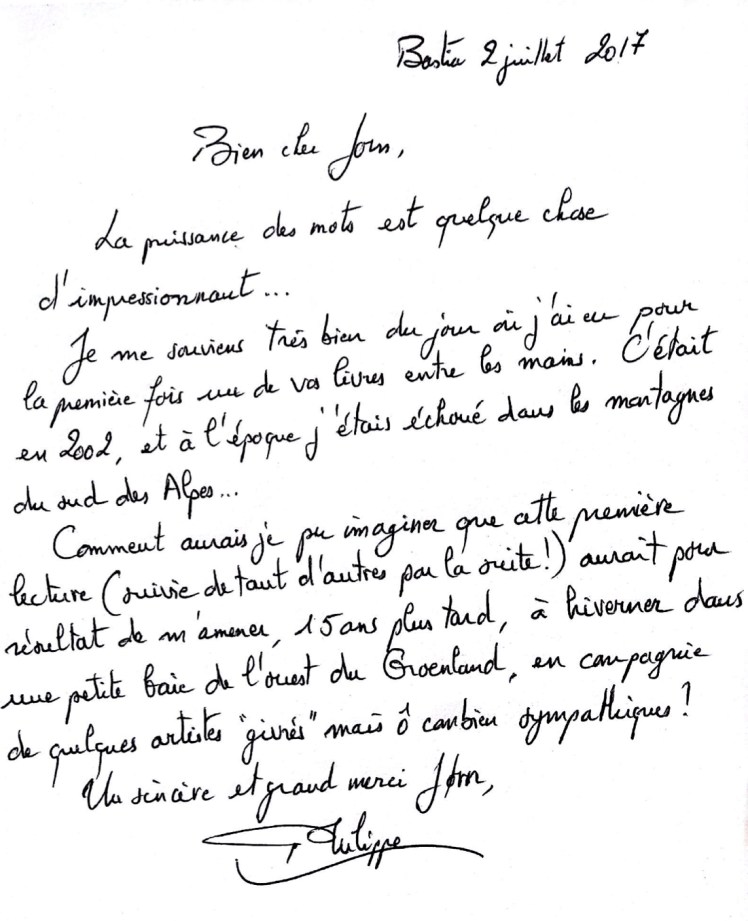 Bastia 2 juillet 2017
Bien cher Jorn,
La puissance des mots est quelque chose
d'impressionnant...
Je me souviens très bien du jour où j'ai eu pour
la première fois un de vos livres entre les mains. C'était
en 2002, et à l'époque j'étais échoué dans les montagnes
du sud des Alpes...
Comment aurais je pu imaginer que cette première
lecture (suivie de tant d'autres par la suite!) aurait pour
résultat de m'amener, 15 ans plus tard, à hiverner dans
une petite baie de l'ouest du Groenland, en compagnie
de quelques artistes "givrés" mais ô combien sympathiques?
Un sincère et grand merci Jørn,
Philippe